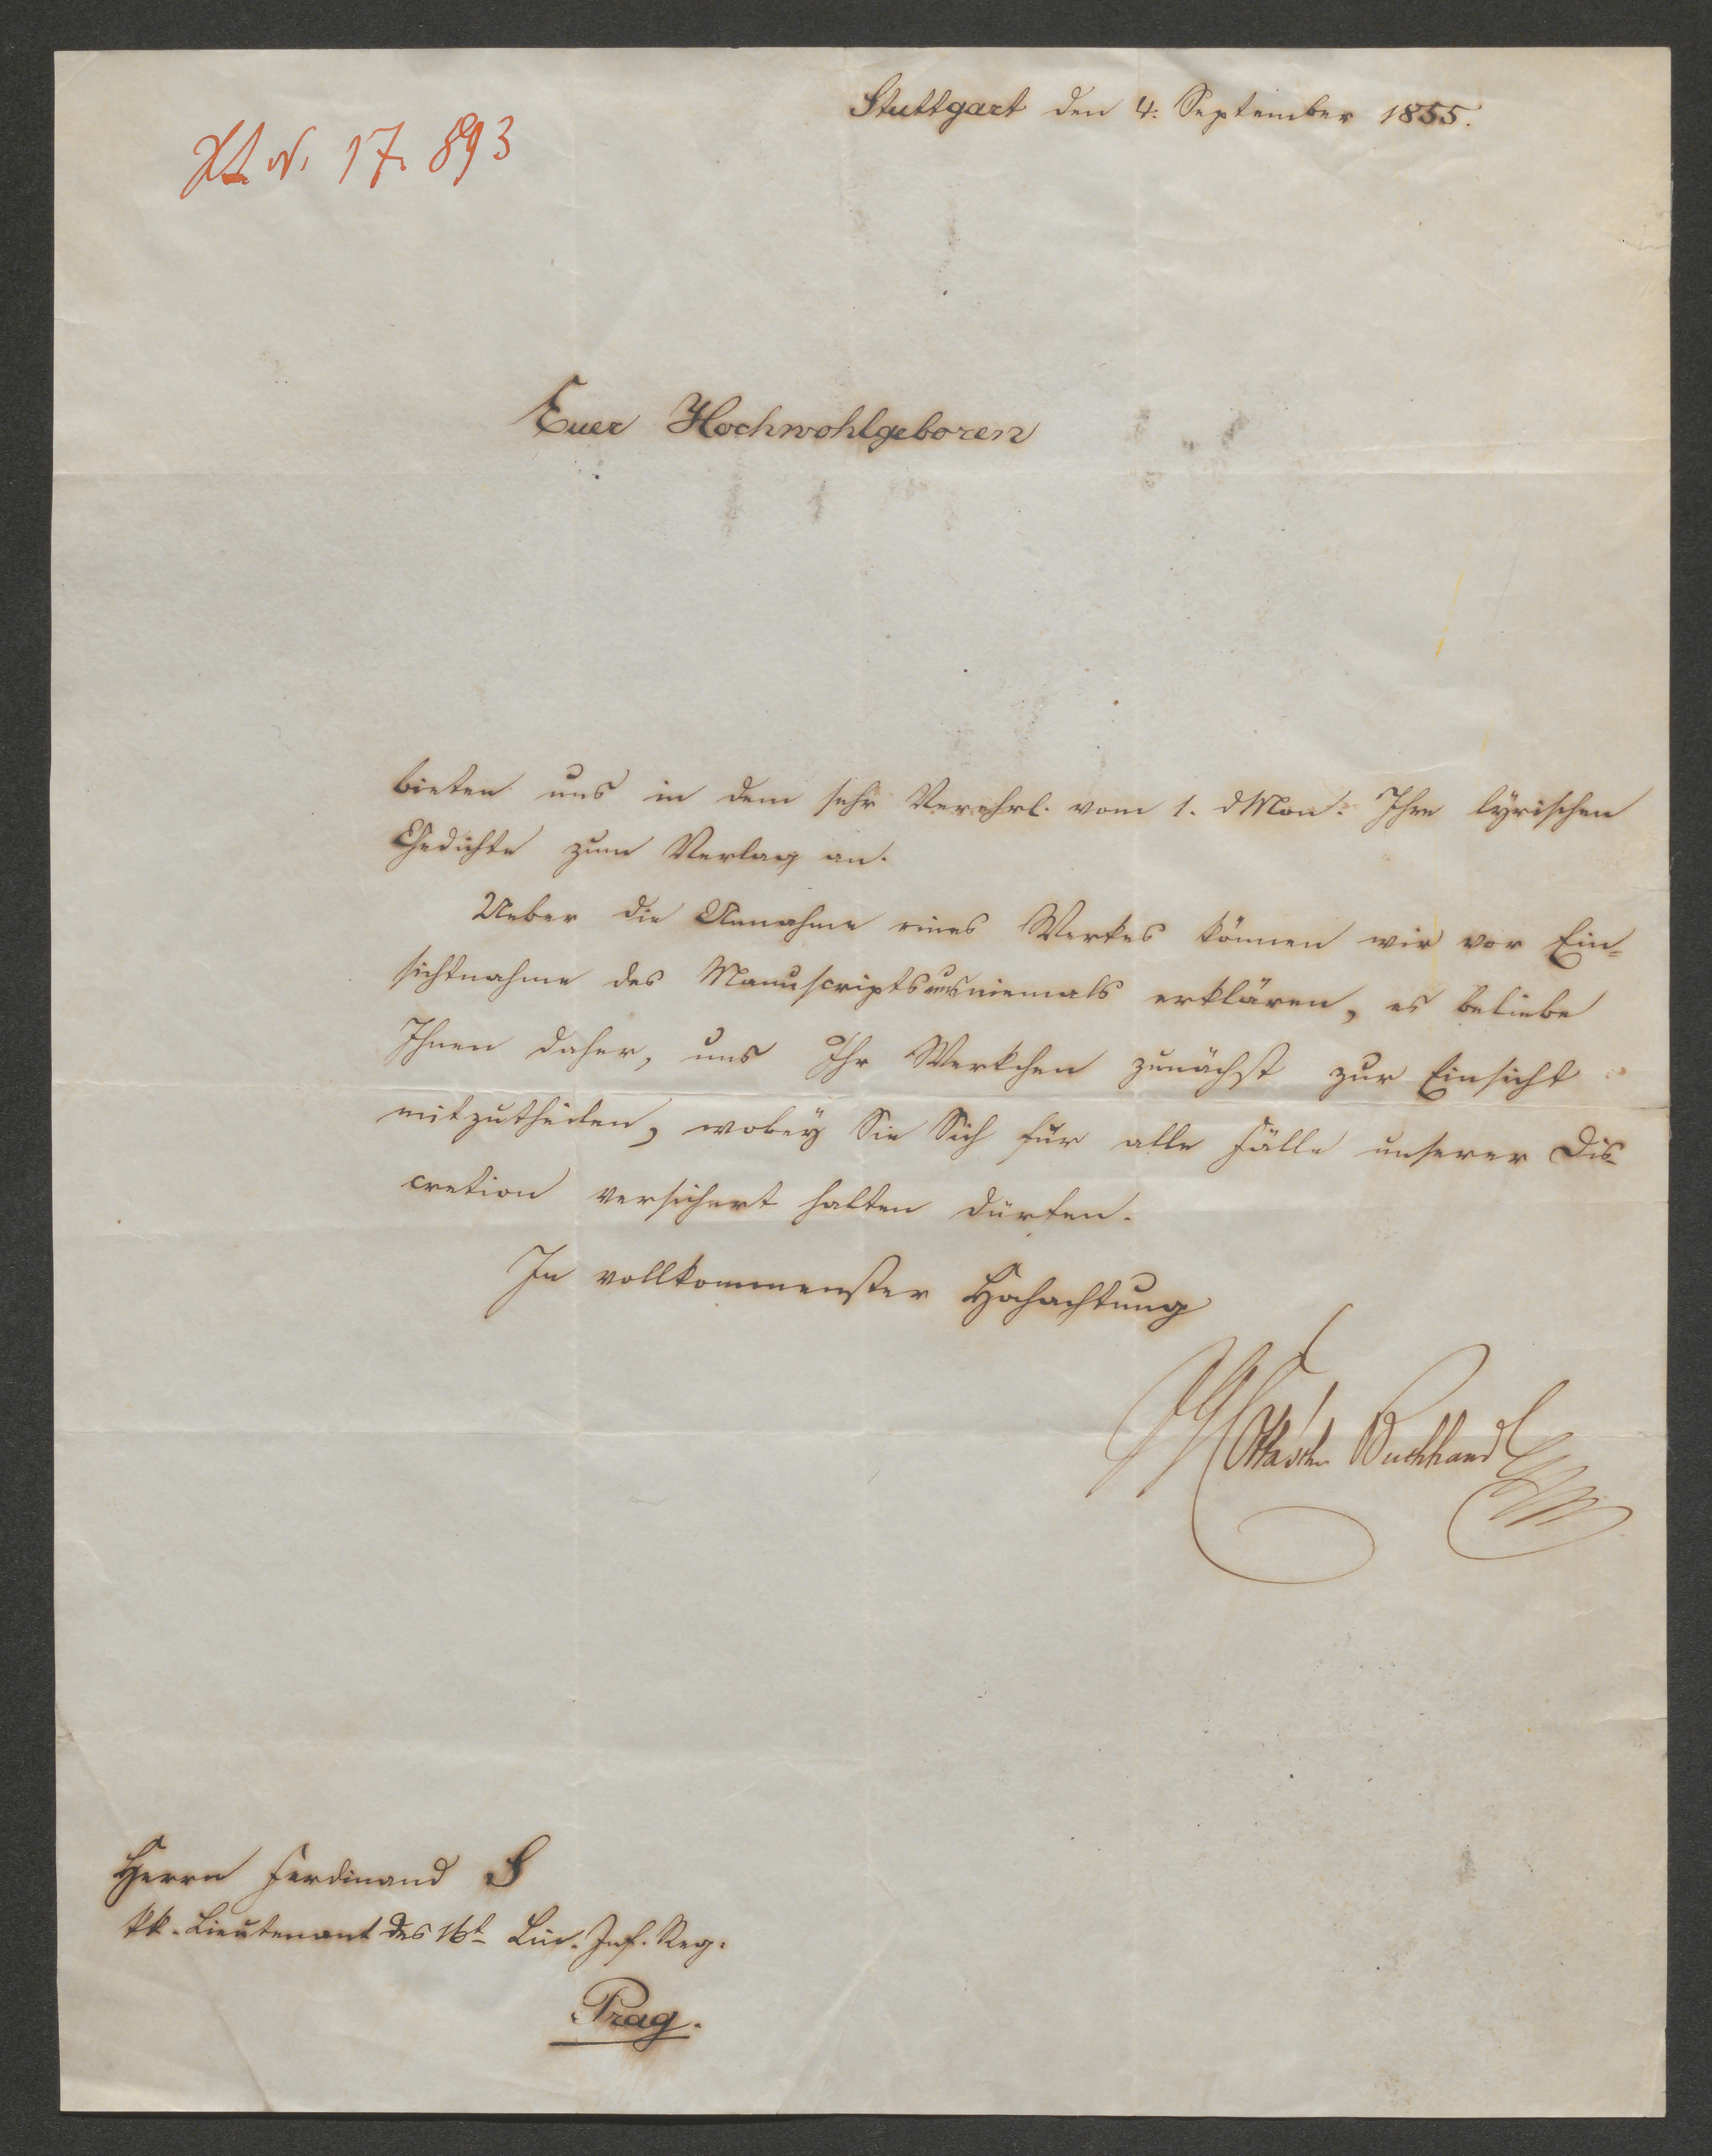 Stuttgart den 4. September 1855.
17.893
Euer Hochwohlgeboren
bieten uns in dem sehr Verehrl. vom 1. dMon. Ihre lyrischen
Gedichte zum Verlag an.
Ueber die Annahme eines Werkes können wir vor Ein=
sichtnahme des Manuscripts uns niemals erklären, es beliebe
Ihnen daher, uns Ihr Werkchen zunächst zur Einsicht
mitzutheilen, wobey Sie Sich für alle Fälle unserer Dis-
cretion versichert halten dürfen.
In vollkommenster Hochachtung
JGCotta'sche Buchhandl
Herrn Ferdinand S
kk. Lieutenant des 16t Lin. Inf. Reg.
Prag.